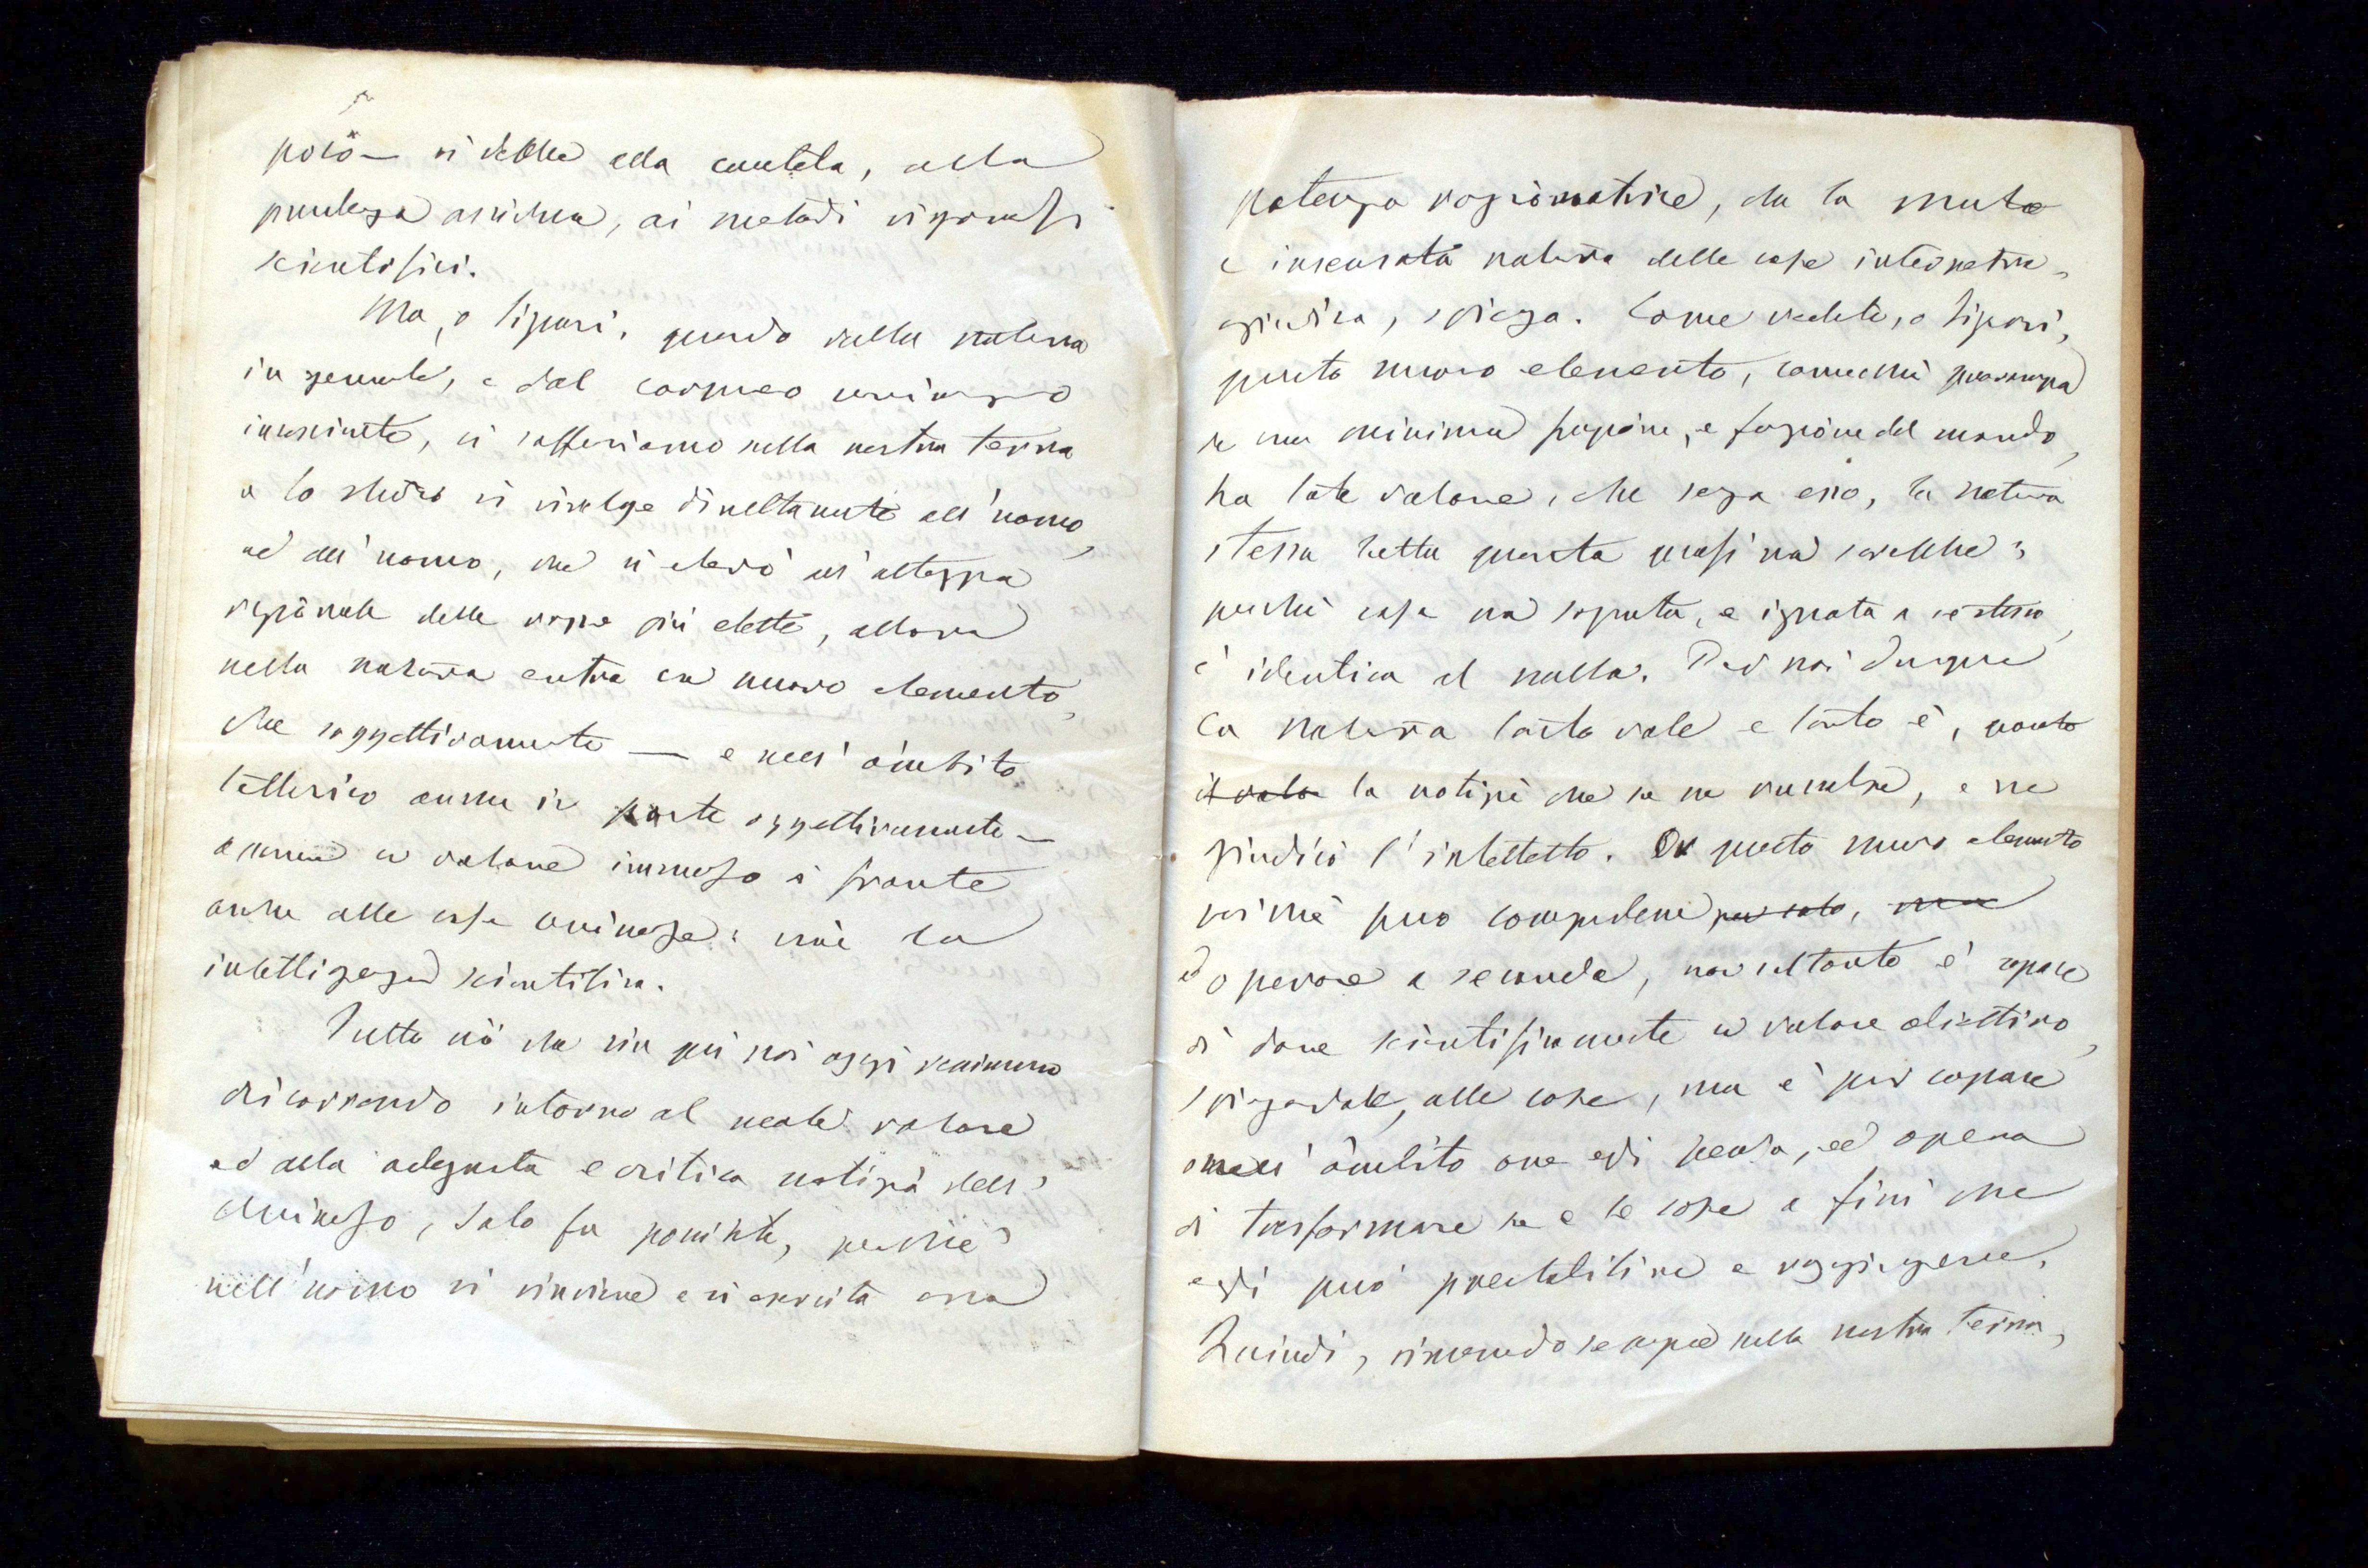 però — si debbe alla cautela, alla
prudenza assidua, ai metodi rigorosi
scientifici.
Ma, o Signori, quando dalla natura
in generale, e dal cosmico universo
ci nella nostra terra
e lo studio si rivolge direttamente all'uomo,
ed all'uomo, che si elevò all'altezza
razionale delle razze più elette, allora
nella natura entra un nuovo elemento,
che soggettivamente — e nell'ambito
tellurico anche in parte oggettivamente —
assume un valore immenso di fronte
anche alle cose universe: cioè la
intelligenza scientifica.
Tutto ciò che sin qui noi oggi venimmo
discorrendo intorno al reale valore
ed alla adeguata e critica notizia dell'
Universo, solo fu possibile, perchè
nell'uomo si rinviene e si esercita essa
potenza raziocinatrice, che la muta
e insensata natura delle cose interpreta,
giudica, spiega. Come vedete, o Signori,
questo nuovo elemento, comechè
se una minima e funzione del mondo,
ha tale valore, che senza esso, la natura
stessa tutta quanta quasi non sarebbe;
perchè cosa non saputa, e ignota a sè stessa,
è identica al nulla. Per noi dunque
la natura tanto vale e tanto è, quanto
è vale la notizia che se ne raccolse, e ne
giudicò l'intelletto. Or questo nuovo elemento
può comprendere per solo, ma
ed operare a seconda, non soltanto è capace
di dare scientificamente un valore obiettivo,
spiegandole, alle cose, ma è pur capace
nell'ambito ove egli pensa, ed opera
di trasformare se e le cose a fini che
egli può prestabilire e raggiungere.
Quindi, rimanendo sempre nella nostra terra,